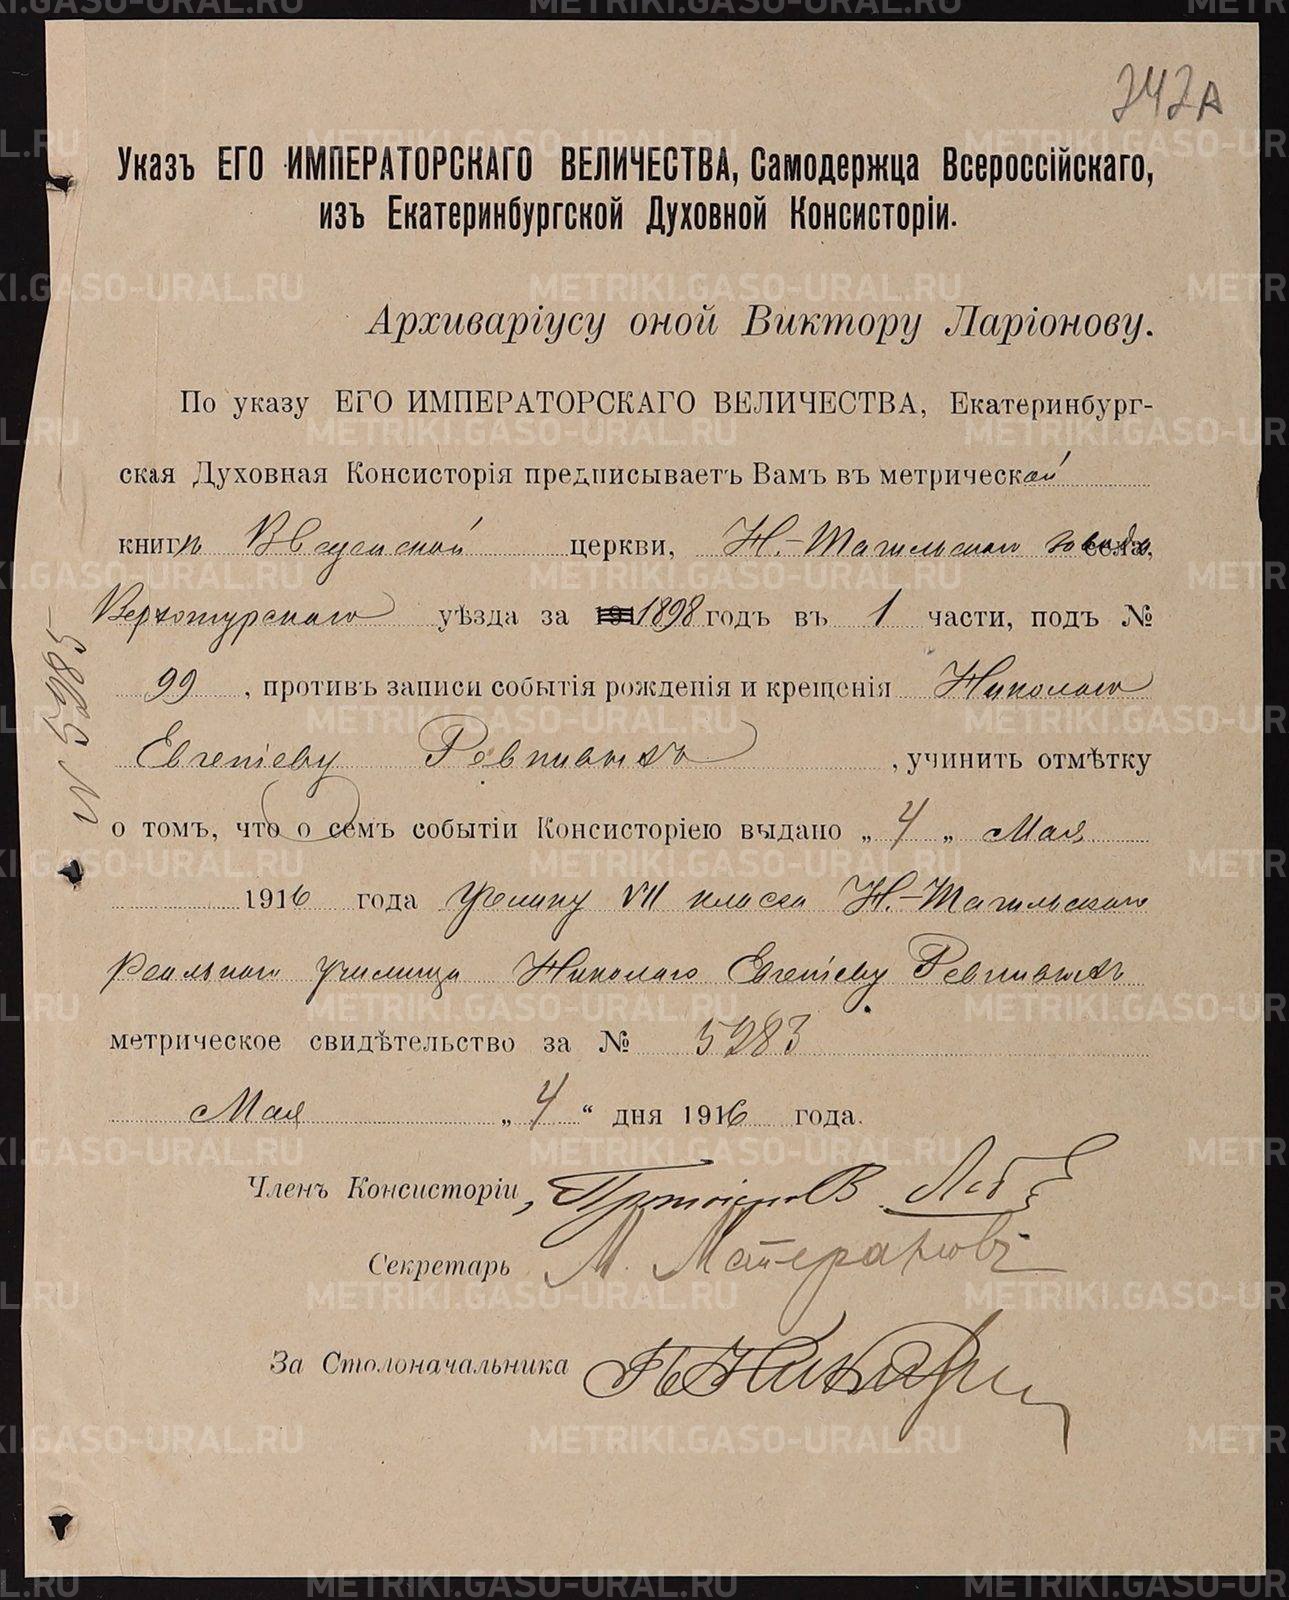 242А
Указъ ЕГО ИМПЕРАТОРСКАГО ВЕЛИЧЕСТВА, Самодержца Всероссійскаго,
изъ Екатеринбургской Духовной Консисторіи.
Архиваріусу оной Виктору Ларіонову.
По указу ЕГО ИМПЕРАТОРСКАГО ВЕЛИЧЕСТВА, Екатеринбург-
ская Духовная Консисторія предписываетъ Вамъ въ метрической
книгѣ Введенской церкви, Н.-Тагильскаго завода села,
Верхотурскаго уѣзда за 191 1898 годъ въ 1 части, подъ №
99, противъ записи событія рожденія и крещенія Николаю
Евгеніеву Ревнивыхъ, учинить отмѣтку
о томъ, что о семъ событіи Консисторіею выдано „4„ Мая
1916 года ученику VII класса Н.-Тагильскаго
Реальнаго училища Николаю Евгеніеву Ревнивыхъ
метрическое свидѣтельство за № 5283
Мая „4“ дня 1916 года.
Членъ Консисторіи, Протоіерей В.
Секретарь М.
За Столоначальника
№ 5285
METRIKI.GASO-URAL.RU